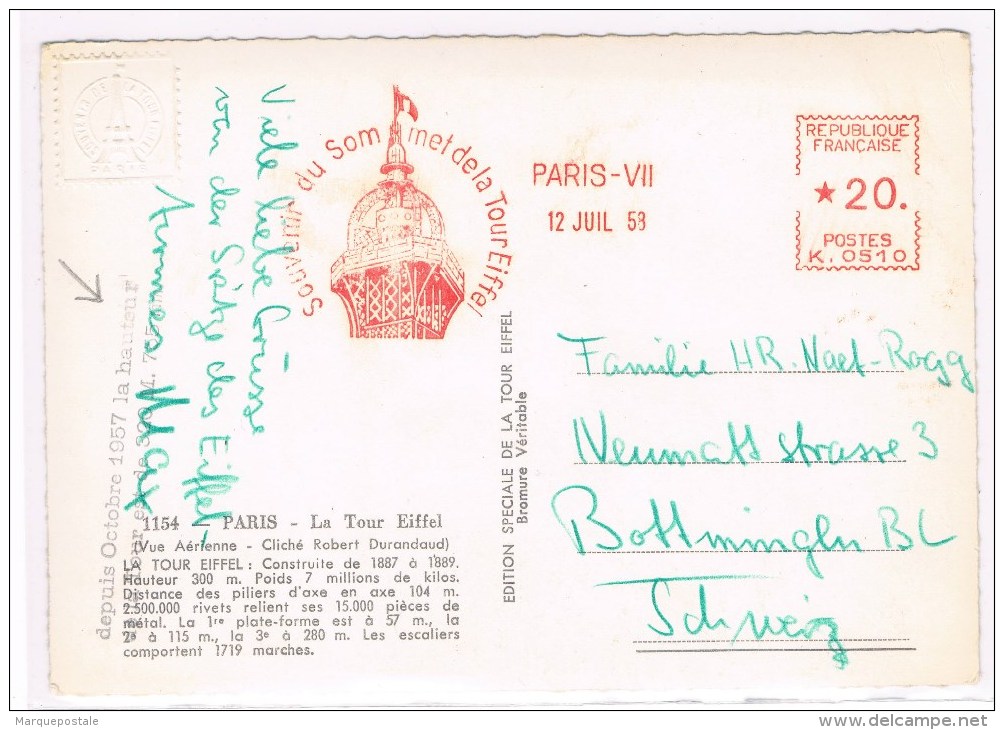 SOUVENIR DE LA TOUR EIFFEL
PARIS
Souvenir du Sommet de la Tour Eiffel
PARIS-VII
12 JUIL 58
REPUBLIQUE
FRANÇAISE
★20.
POSTES
K. 0510
Viele liebe Grüsse
von der Spitze des Eiffel-
Max
depuis Octobre 1957 la hauteur
1154 — PARIS - La Tour Eiffel
(Vue Aérienne - Cliché Robert Durandaud)
LA TOUR EIFFEL : Construite de 1887 à 1889.
Hauteur 300 m. Poids 7 millions de kilos.
Distance des piliers d'axe en axe 104 m.
2.500.000 rivets relient ses 15.000 pièces de
métal. La 1re plate-forme est à 57 m., la
2e à 115 m., la 3e à 280 m. Les escaliers
comportent 1719 marches.
EDITION SPECIALE DE LA TOUR EIFFEL
Bromure Véritable
Familie HR. Naef-Rogg
Neumattstrasse 3
Bottmingen BL
Schweiz
Marquepostale
delcampe.net